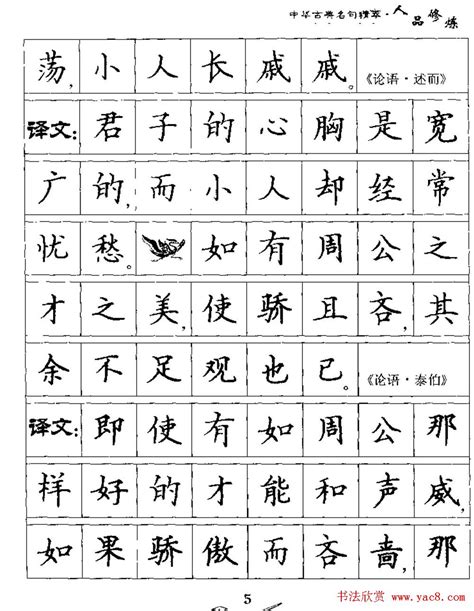 中华古典名句精萃·人品修炼
荡,小人长戚戚。《论语·述而》
译文:君子的心胸是宽
广的,而小人却经常
忧愁。如有周公之
才之美,使骄且吝,其
余不足观也已。《论语·泰伯》
译文:即使有如周公那
样好的才能和声威,
如果骄傲而吝啬,那
5
书法欣赏 www.yac8.com